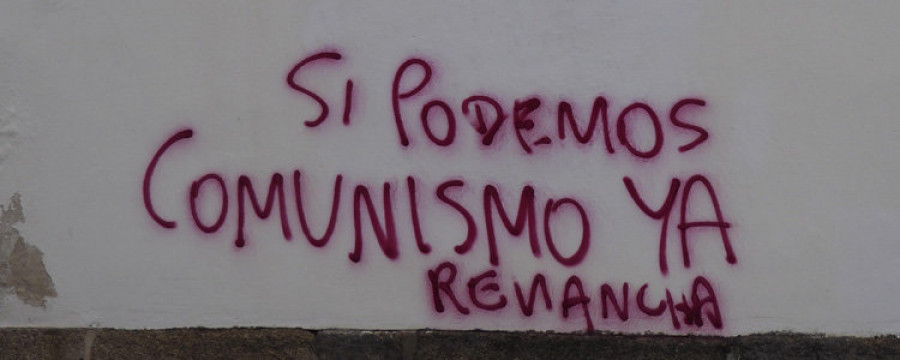 SI PODEMOS
COMUNISMO YA
REVANCHA